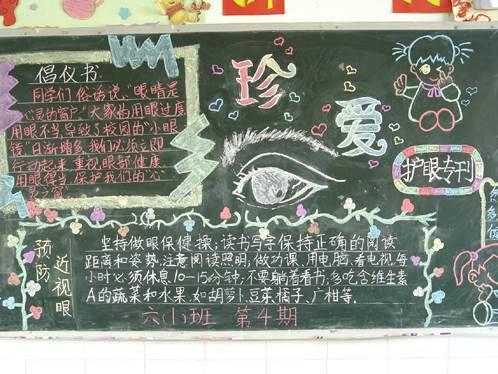 倡仪书
同学们俗话说，眼睛是
心灵的窗户，大家的用眼过度
用眼不当导致了校园的“小眼
镜”日渐增多我们必须立即
行动起来 重视眼部健康
用眼得当 保护我们的“心
灵之窗”
珍
爱
护眼专刊
预防
近视眼
坚持做眼保健操；读书写字保持正确的阅读
距离和姿势，注意阅读照明，做功课，用电脑，看电视每
小时必须休息10—15分钟，不要躺着看书；多吃含维生素
A的蔬菜和水果，如胡萝卜、豆菜、橘子、广柑等。
六(1)班 第4期